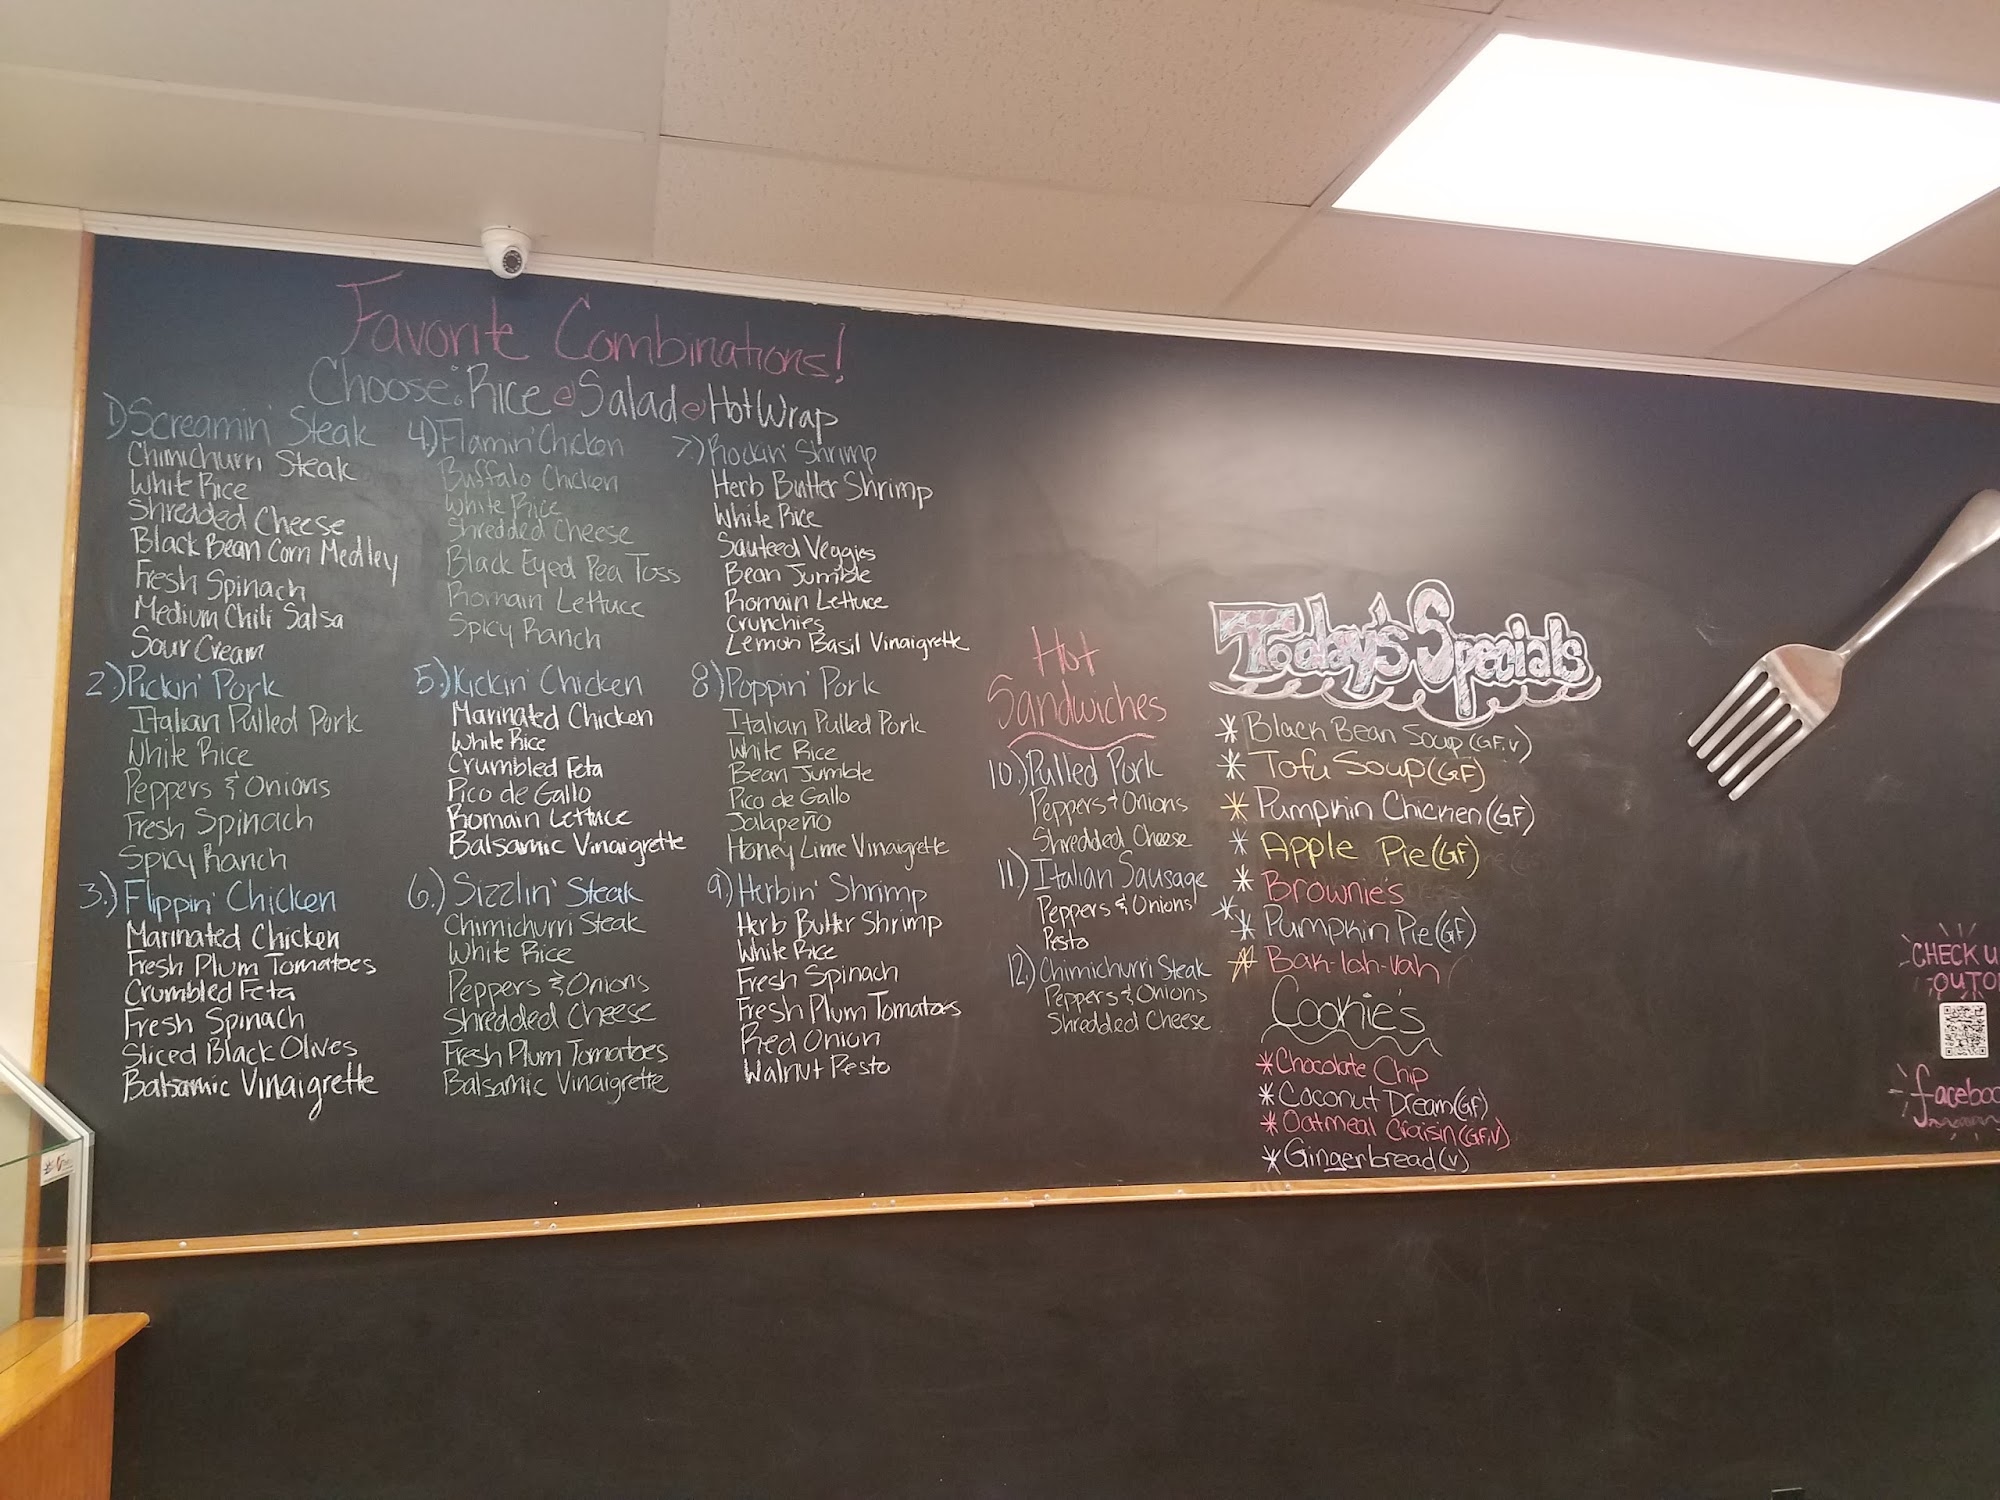 Favorite Combinations!
Choose: Rice or Salad or Hot Wrap
1) Screamin' Steak
Chimichurri Steak
White Rice
Shredded Cheese
Black Bean Corn Medley
Fresh Spinach
Medium Chili Salsa
Sour Cream
2) Pickin' Pork
Italian Pulled Pork
White Rice
Peppers & Onions
Fresh Spinach
Spicy Ranch
3.) Flippin' Chicken
Marinated Chicken
Fresh Plum Tomatoes
Crumbled Feta
Fresh Spinach
Sliced Black Olives
Balsamic Vinaigrette
4.) Flamin' Chicken
Buffalo Chicken
White Rice
Shredded Cheese
Black Eyed Pea Toss
Romain Lettuce
Spicy Ranch
5.) Kickin' Chicken
Marinated Chicken
White Rice
Crumbled Feta
Pico de Gallo
Romain Lettuce
Balsamic Vinaigrette
6.) Sizzlin' Steak
Chimichurri Steak
White Rice
Peppers & Onions
Shredded Cheese
Fresh Plum Tomatoes
Balsamic Vinaigrette
7.) Rockin' Shrimp
Herb Butter Shrimp
White Rice
Sauteed Veggies
Bean Jumble
Romain Lettuce
Crunchies
Lemon Basil Vinaigrette
8) Poppin' Pork
Italian Pulled Pork
White Rice
Bean Jumble
Pico de Gallo
Jalapeño
Honey Lime Vinaigrette
9.) Herbin' Shrimp
Herb Butter Shrimp
White Rice
Fresh Spinach
Fresh Plum Tomatoes
Red Onion
Walnut Pesto
Hot
Sandwiches
10.) Pulled Pork
Peppers & Onions
Shredded Cheese
11.) Italian Sausage
Peppers & Onions
Pesto
12.) Chimichurri Steak
Peppers & Onions
Shredded Cheese
Today's Specials
* Black Bean Soup (GF,V)
* Tofu Soup (GF)
* Pumpkin Chicken (GF)
* Apple Pie (GF)
* Brownies
* Pumpkin Pie (GF)
* Bak-lah-vah
Cookie's
* Chocolate Chip
* Coconut Dream (GF)
* Oatmeal Craisin (GF,V)
* Gingerbread (V)
CHECK U
OUT O
faceboo